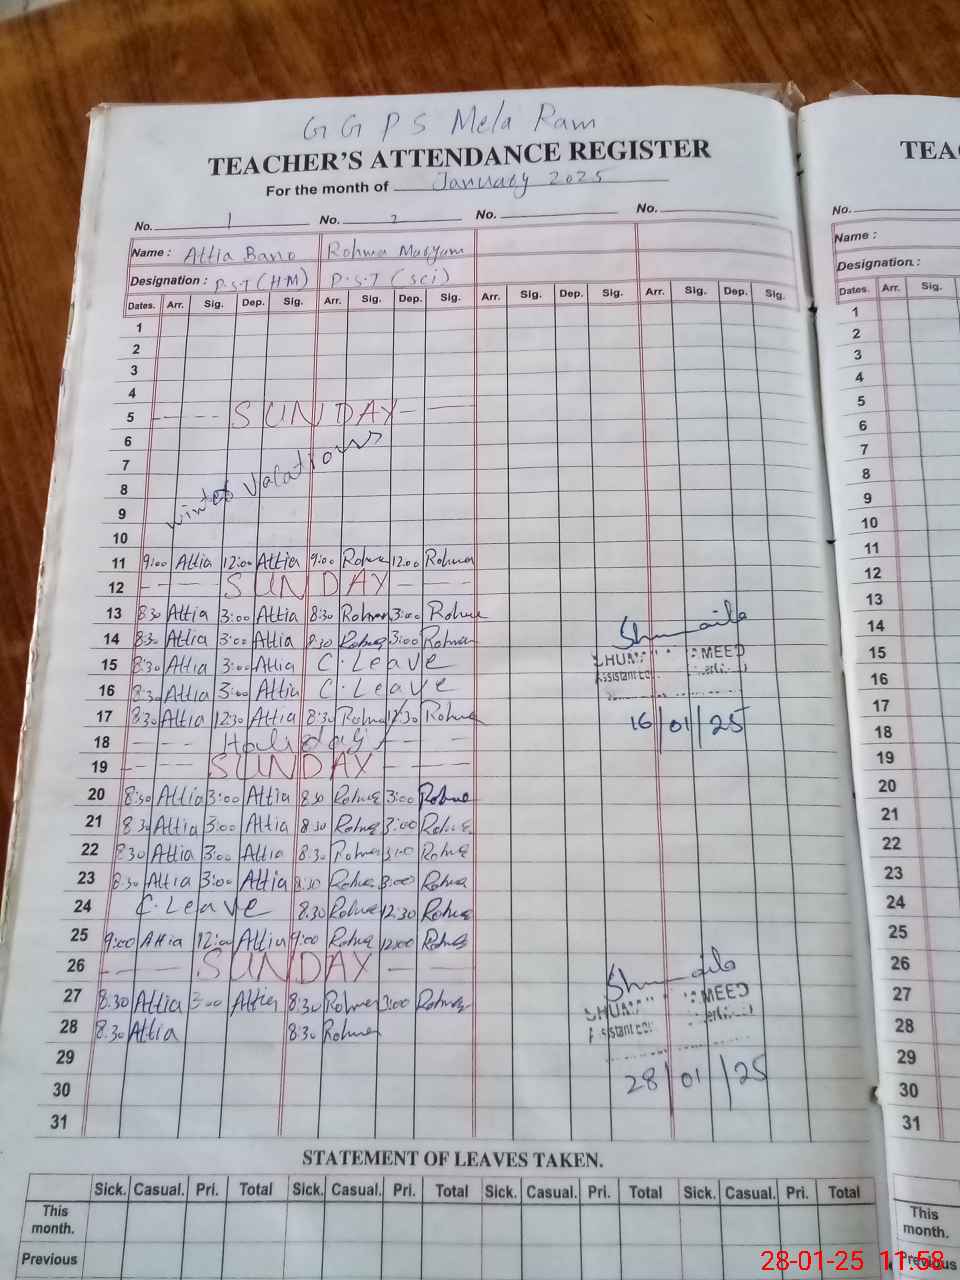 G G P S Mela Ram
TEACHER'S ATTENDANCE REGISTER
For the month of January 2025
No. 1 No. 2 No. No.
Name : Attia Bano Rohma Maryam
Designation : P.S.T (H.M) P.S.T (Sci)
Dates. Arr. Sig. Dep. Sig. Arr. Sig. Dep. Sig. Arr. Sig. Dep. Sig. Arr. Sig. Dep. Sig.
1
2
3
4
5 SUNDAY
6
7
8 winter Vacations
9
10
11 9:00 Attia 12:00 Attia 9:00 Rohma 12:00 Rohma
12 SUNDAY
13 8:30 Attia 3:00 Attia 8:30 Rohma 3:00 Rohma
14 8:30 Attia 3:00 Attia 8:30 Rohma 3:00 Rohma
15 8:30 Attia 3:00 Attia C.Leave
16 8:30 Attia 3:00 Attia C.Leave
17 8:30 Attia 12:30 Attia 8:30 Rohma 12:30 Rohma
18 Holiday
19 SUNDAY
20 8:30 Attia 3:00 Attia 8:30 Rohma 3:00 Rohma
21 8:30 Attia 3:00 Attia 8:30 Rohma 3:00 Rohma
22 8:30 Attia 3:00 Attia 8:30 Rohma 3:00 Rohma
23 8:30 Attia 3:00 Attia 8:30 Rohma 3:00 Rohma
24 C.Leave 8:30 Rohma 12:30 Rohma
25 9:00 Attia 12:00 Attia 9:00 Rohma 12:00 Rohma
26 SUNDAY
27 8:30 Attia 3:00 Attia 8:30 Rohma 3:00 Rohma
28 8:30 Attia 8:30 Rohma
29
30
31
Shumaila
16/01/25
Shumaila
28/01/25
STATEMENT OF LEAVES TAKEN.
Sick. Casual. Pri. Total Sick. Casual. Pri. Total Sick. Casual. Pri. Total Sick. Casual. Pri. Total
This
month.
Previous
No.
Name :
Designation :
Dates. Arr. Sig.
1
2
3
4
5
6
7
8
9
10
11
12
13
14
15
16
17
18
19
20
21
22
23
24
25
26
27
28
29
30
31
Sick. Casual.
This
month.
28-01-25 11:58